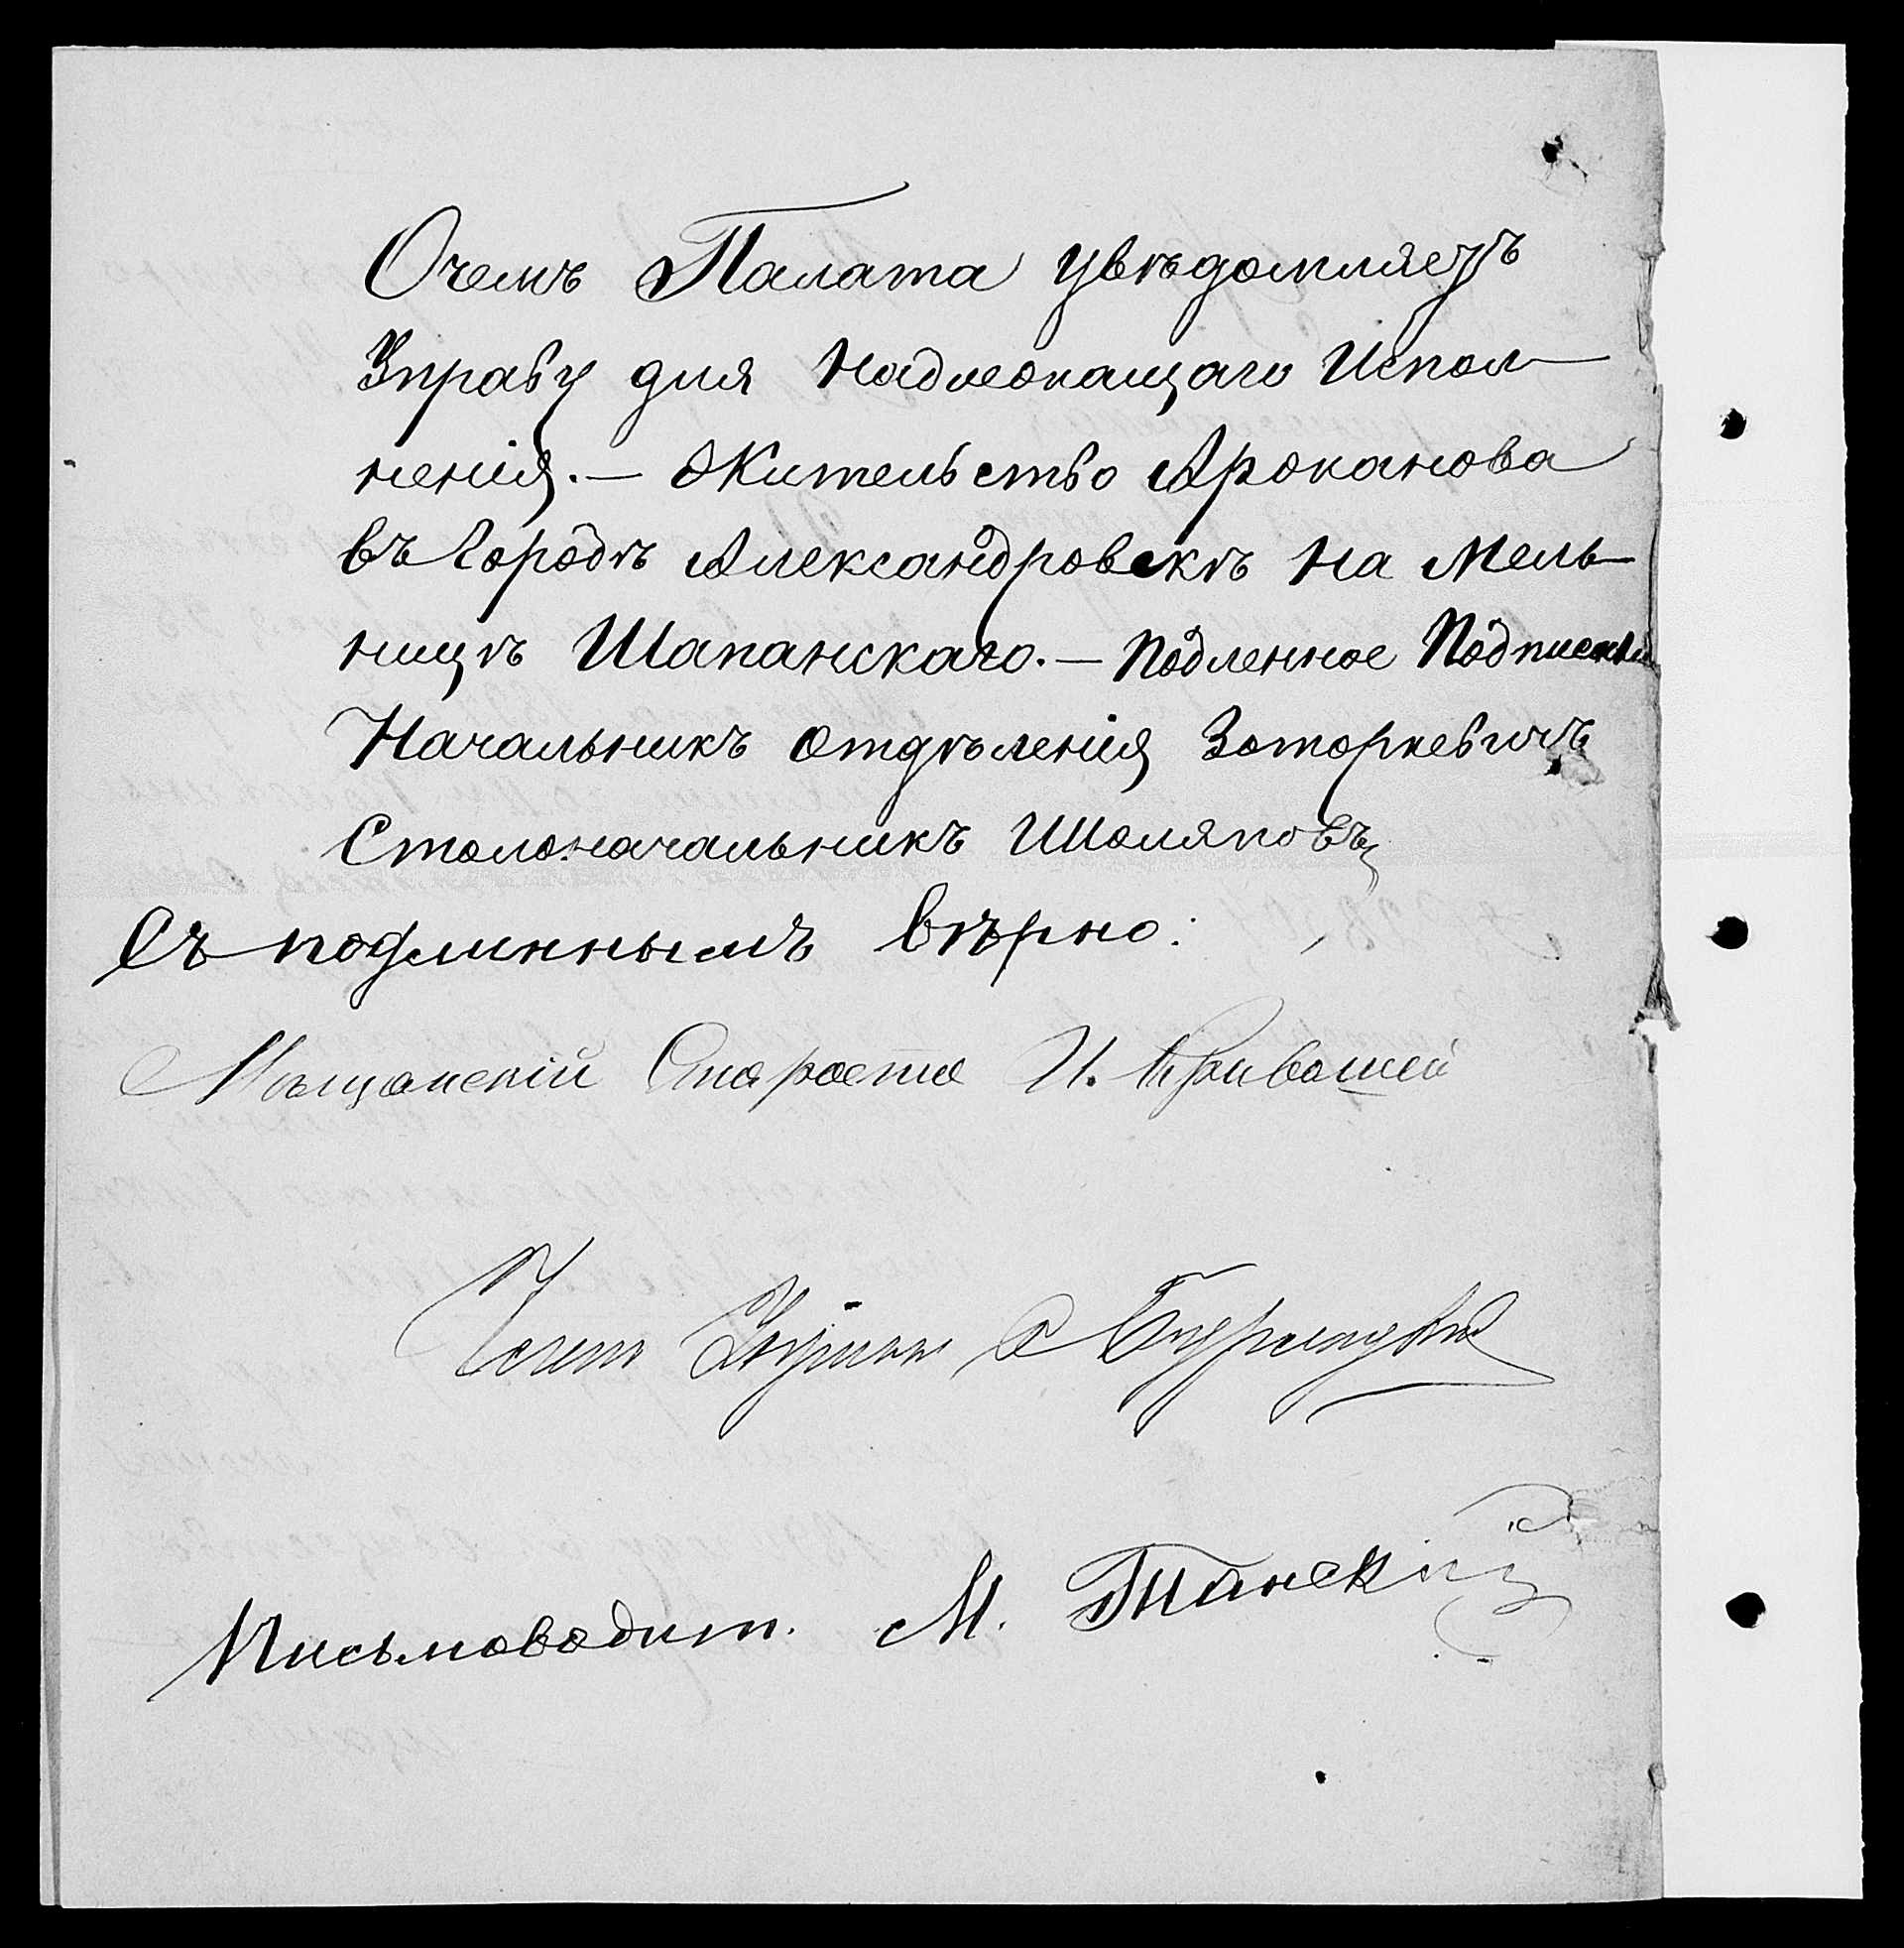 Очемъ Палата увѣдомляетъ
Управу для надлежащаго Испол—
ненія. — Жительство Аржанова
въ Городѣ Александровскѣ на Мель—
ницѣ Шапанскаго. — Подленное Подписали
Начальникъ отдѣленія Заторкевичъ
Столоначальникъ Шаляповъ
Съ подлиннымъ вѣрно:
Мѣщанскій Староста И. Кривошей
Письмоводит. М. Танскій